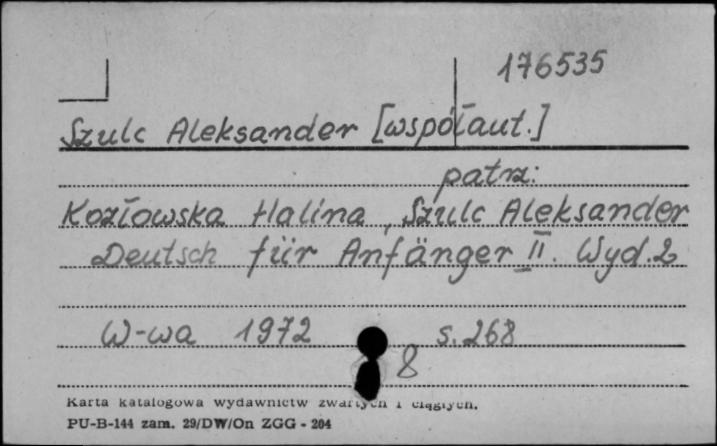 176535
Szulc Aleksander [współaut.]
patrz:
Kozłowska Halina, Szulc Aleksander
Deutsch für Anfänger II. Wyd. 2
W-wa 1972 s. 268
8
Karta katalogowa wydawnictw zwartych i ciągłych.
PU-B-144 zam. 29/DW/On ZGG - 204